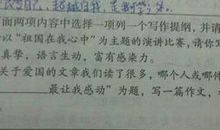 面两项内容中选择一项列一个写作提纲，并请
以“祖国在我心中”为主题的演讲比赛，请你写
真挚，语言生动，富有感染力。
关于爱国的文章我们读了很多，哪个人或哪件
最让我感动”为题，写一篇作文，